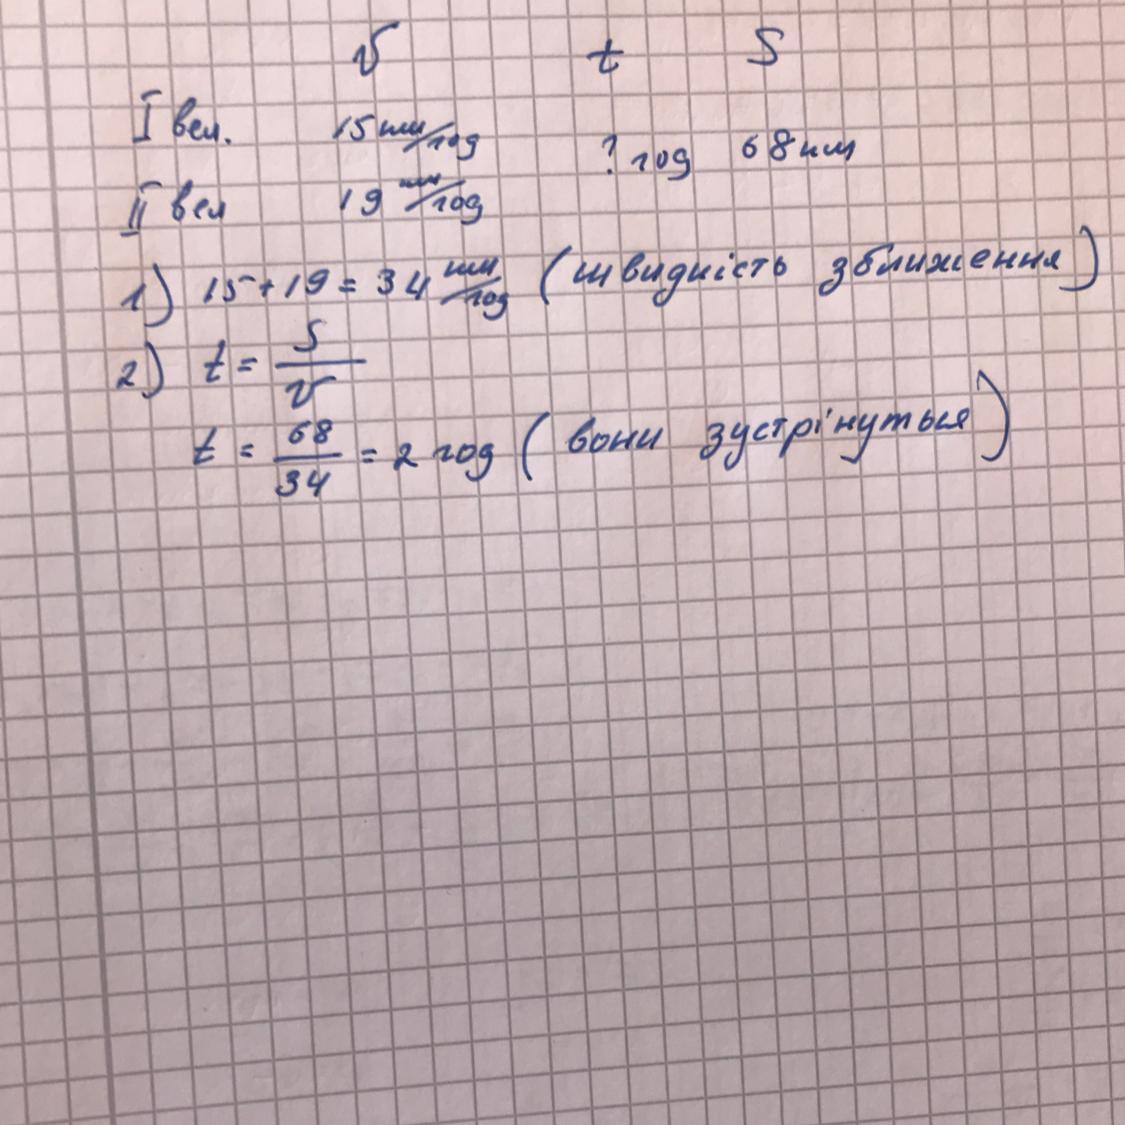 V t S
I вел. 15 км/год ? год 68 км
II вел 19 км/год
1) 15+19 = 34 км/год (швидкість зближення)
2) t = S/V
t = 68/34 = 2 год (вони зустрінуться)